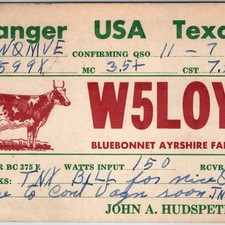 anger USA Texa
NQMVE CONFIRMING QSO 11-7
599X MC 3.5+ CST 7.
W5LOY
BLUEBONNET AYRSHIRE FAR
R BC 375 E WATTS INPUT 150 RCVR
KS: TNX BILL for nice Q
to Cont agn soon
JOHN A. HUDSPET